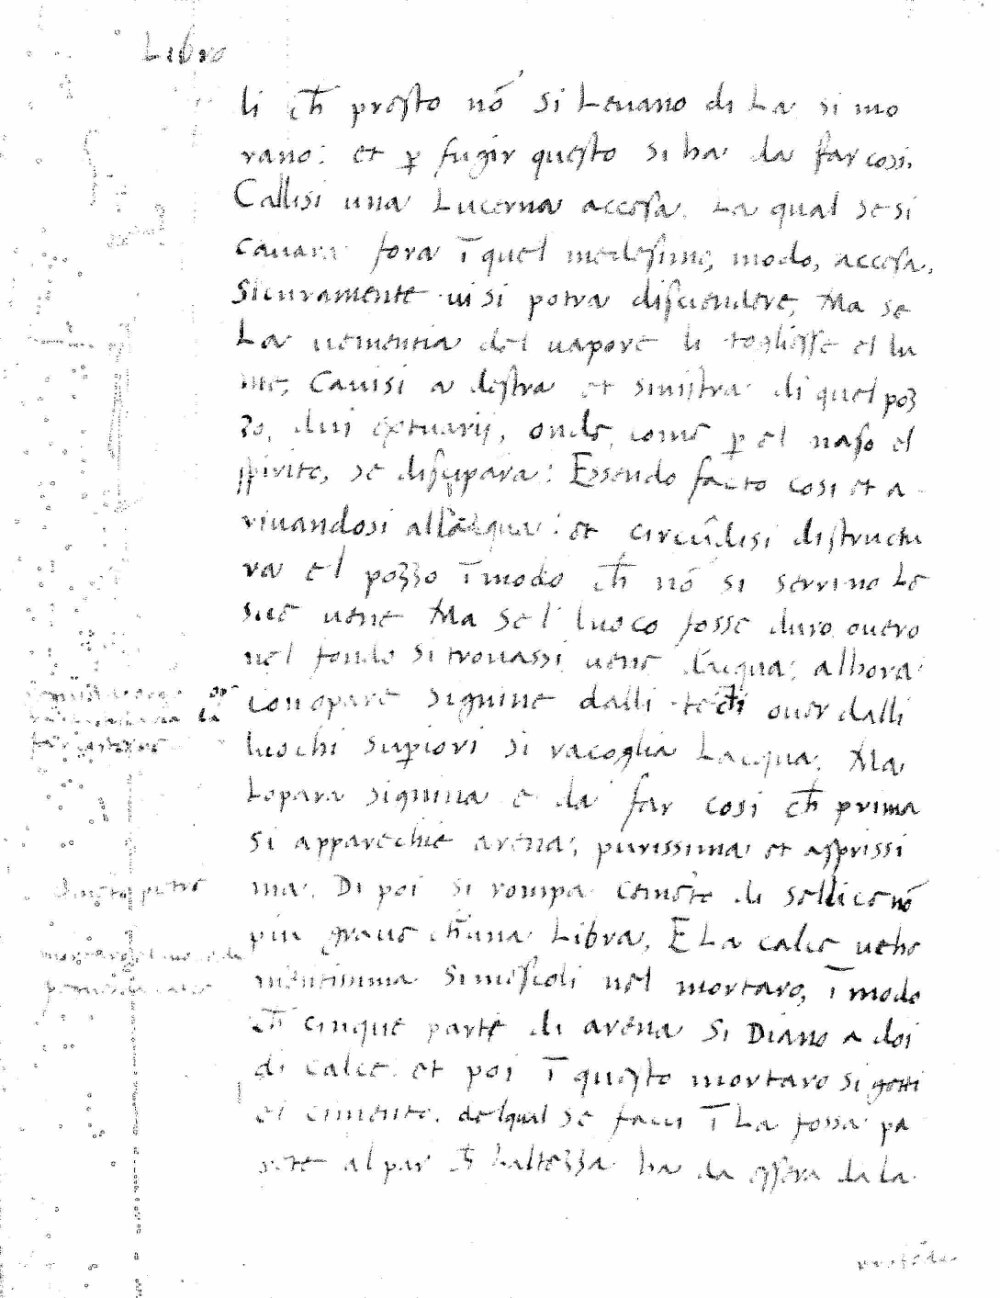 Libro
li ch̄ presto nō si Leuano di La si mo
rano: et ꝑ fugir questo si ha da far cosi.
Callisi una Lucerna accesa. La qual se si
cauara fora ī quel medesimo, modo, accesa,
Sicuramente ui si potra disciendere, Ma se
La uementia del uapore li togliesse el lu
me, Cauisi a destra et sinistra di quel poz
zo, dui extuarij, onde, come ꝑ el naso el
spirito, se discipara: Essendo facto cosi et a
riuandosi all'acqua: et circūdisi di structu
ra el pozzo ī modo ch̄ nō si serrino Le
sue uene Ma se l' luoco fosse duro ouero
nel fondo si trouassi uene d'acqua: alhora
con opare signine dalli tecti ouer dalli
luochi suꝑiori si racoglia Lacqua. Ma
Lopara signina e da far cosi ch̄ prima
si apparechie arena, purissima et asprissi
ma. Di poi si rompa cemēto di sellice nō
piu graue ch̄ una Libra, E La calce uehe
mentissima si mescoli nel mortaro, ī modo
ch̄ cinque parte di arena si Diano a doi
di calce. et poi ī questo mortaro si getti
el cimento. del qual se facci ī La fossa pa
rete al par ch̄ haltezza ha da essera da la